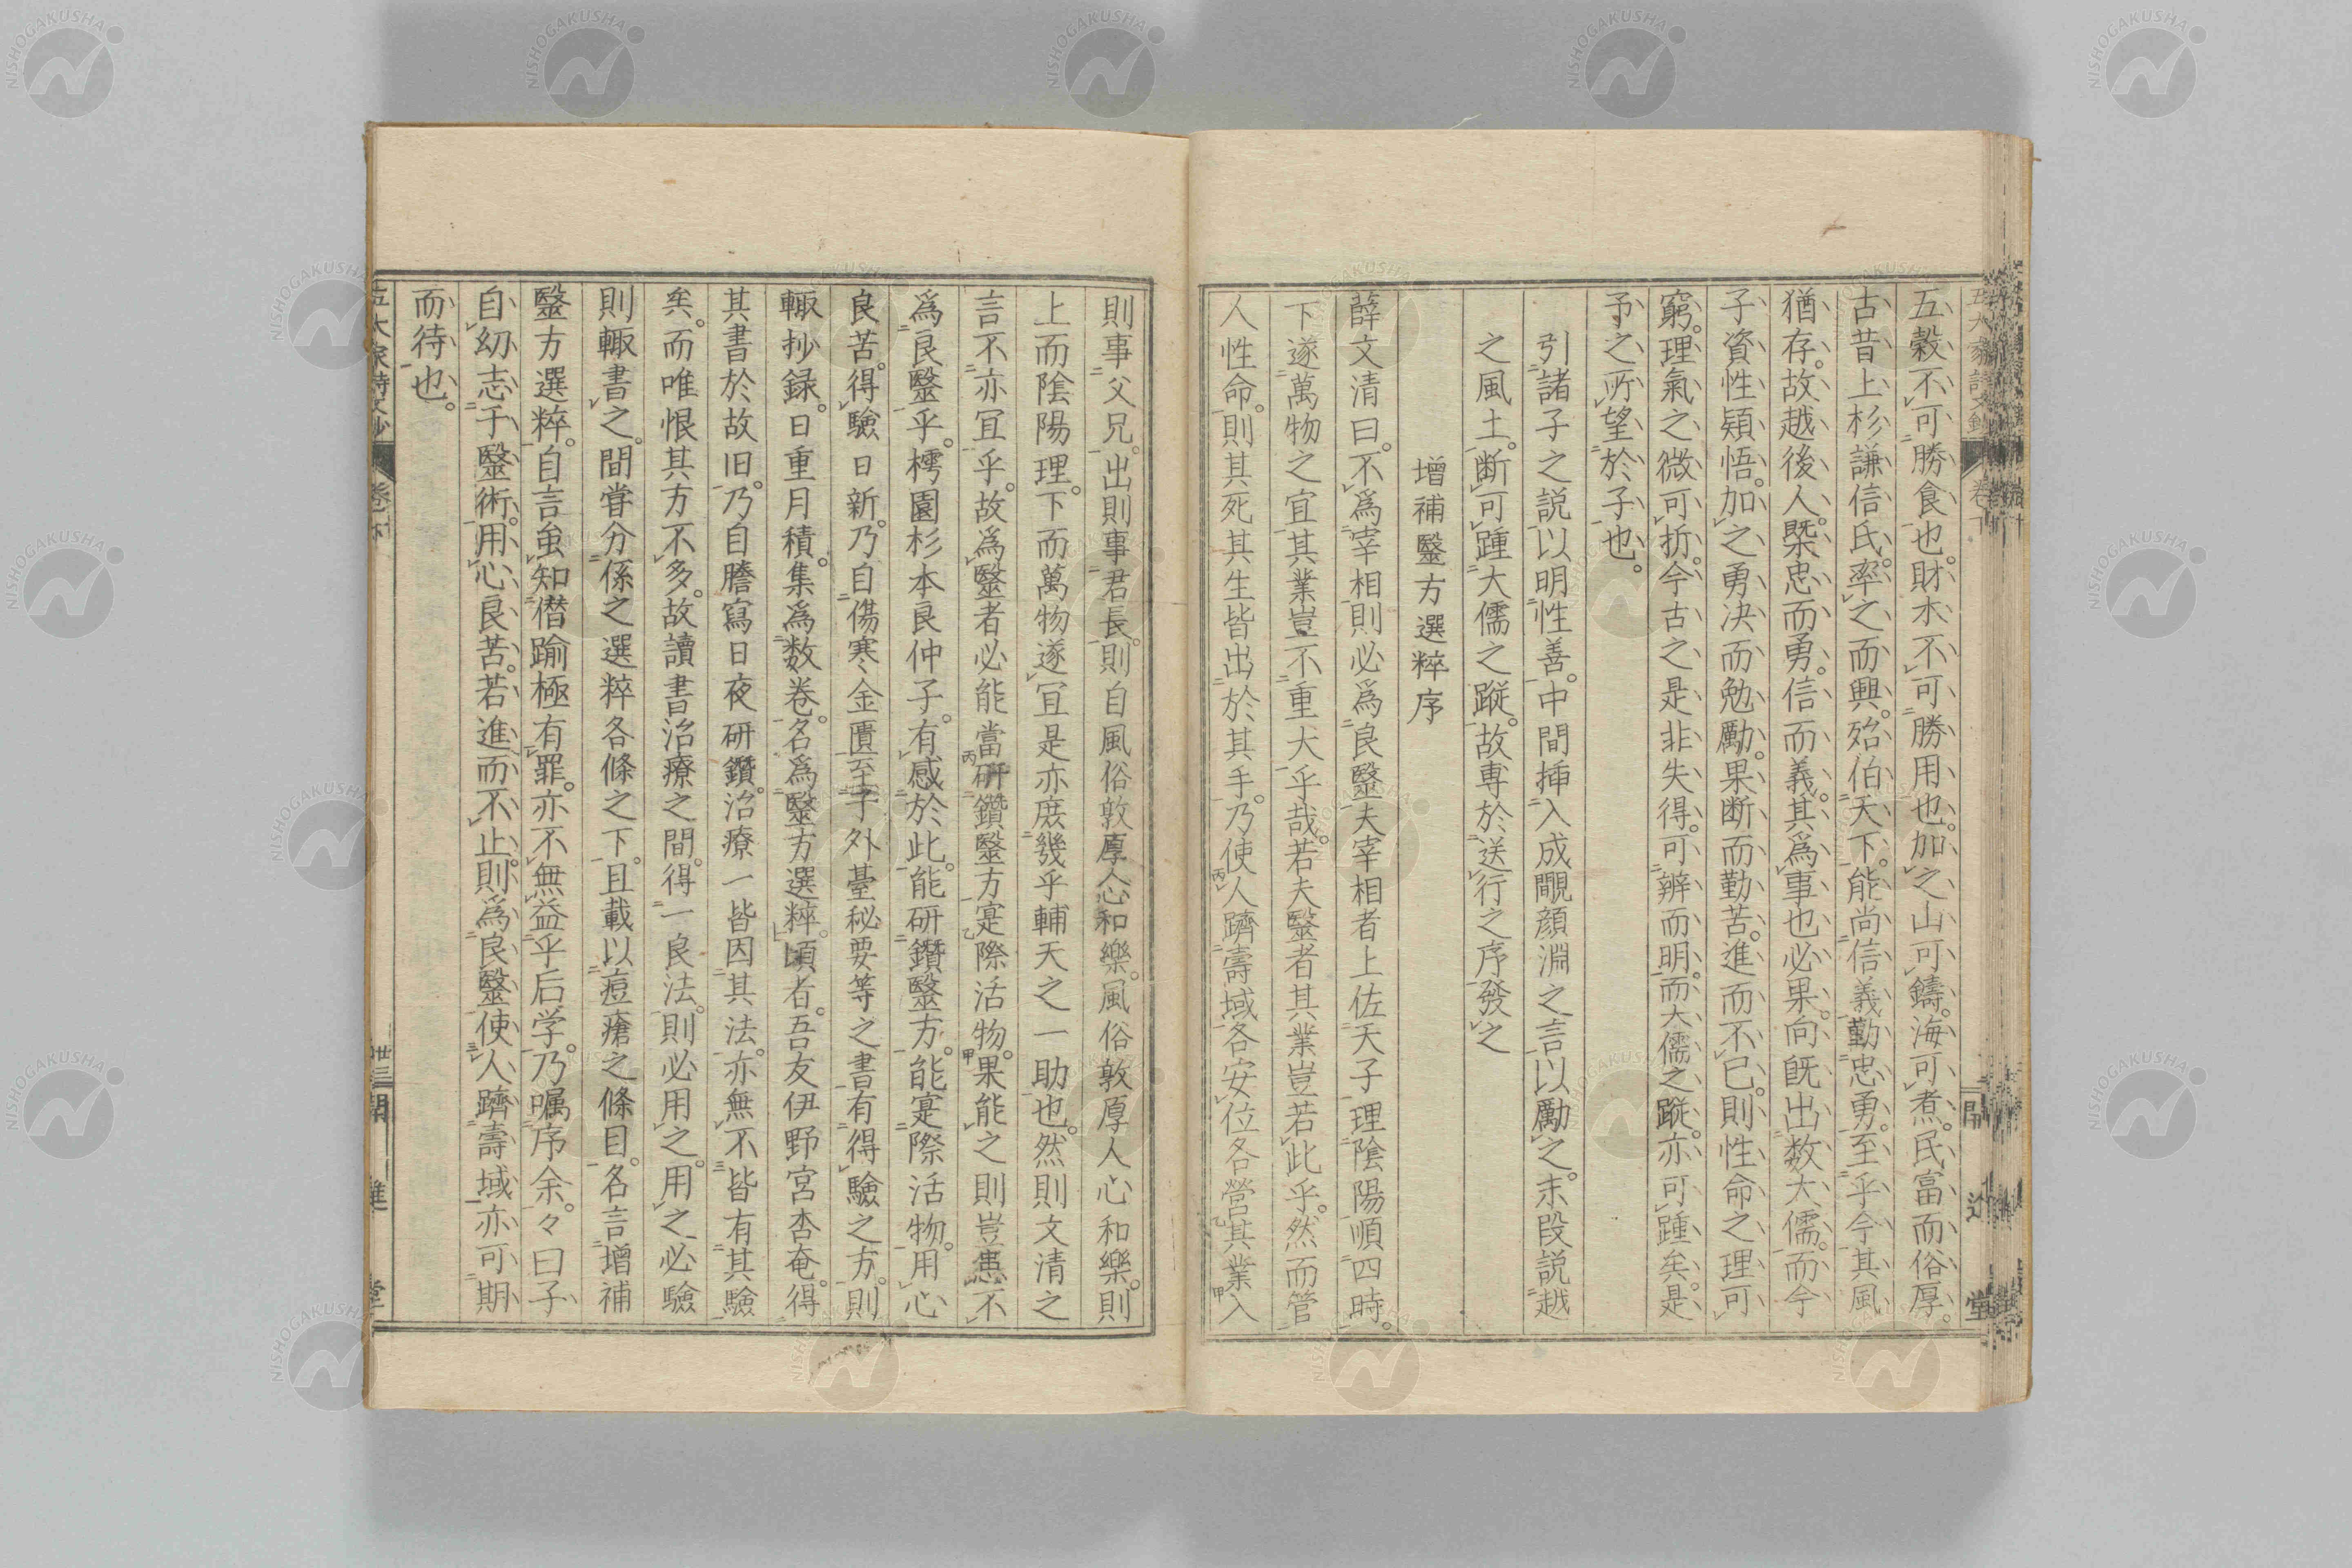 五穀不可勝食也。財木不可勝用也。加之山可鑄。海可煮。民富而俗厚。
古昔上杉謙信氏。率之而興。殆伯天下。能尚信義勤忠勇。至乎今其風
猶存。故越後人。槩忠而勇。信而義。其爲事也必果。向既出数大儒。而今
子資性穎悟。加之勇决而勉勵。果断而勤苦。進而不已。則性命之理可
窮。理氣之微可折。今古之是非失得。可辨而明。而大儒之蹤。亦可踵矣。是
予之所望於子也。
引諸子之説以明性善。中間挿入成覵顔淵之言以勵之。末段説越
之風土。断可踵大儒之蹤。故専於送行之序發之
増補毉方選粹序
薛文清曰。不爲宰相則必爲良毉夫宰相者上佐天子理陰陽順四時。
下遂萬物之宜其業豈不重大乎哉。若夫毉者其業豈若此乎。然而管
人性命。則其死其生皆出於其手。乃使人躋壽域各安位各營其業入
則事父兄。出則事君長。則自風俗敦厚人心和樂。風俗敦厚人心和樂。則
上而陰陽理。下而萬物遂冝是亦庶幾乎輔天之一助也。然則文清之
言不亦冝乎。故爲毉者必能當研鑽毉方寔際活物。果能之則豈患不
爲良毉乎。樗園杉本良仲子。有感於此。能研鑽毉方。能寔際活物。用心
良苦。得驗日新。乃自傷寒金匱至于外臺秘要等之書有得驗之方。則
輙抄録。日重月積。集爲数巻。名爲毉方選粹。頃者。吾友伊野宮杏奄。得
其書於故旧。乃自謄寫日夜研鑽。治療一皆因其法。亦無不皆有其驗
矣。而唯恨其方不多。故讀書治療之間。得一良法。則必用之。用之必驗
則輙書之。間甞分係之選粹各條之下。且載以痘瘡之條目。名言増補
毉方選粹。自言虽知僭踰極有罪。亦不無益乎后学。乃嘱序余。々曰子
自幼志于毉術。用心良苦。若進而不止。則爲良毉使人躋壽域亦可期
而待也。
五大家詩文鈔
巻下
卅三
開
進
堂